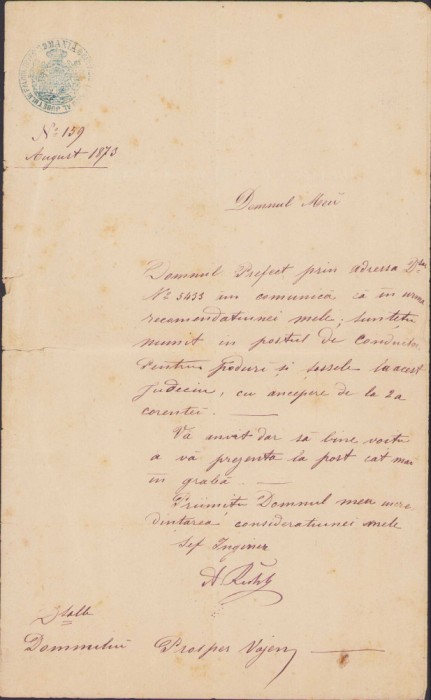 ROMANIA
No 159
August 1873
Domnul Meu
Domnul Prefect prin adressa
No 5433 mi comunică că în urma
recomandatiunei mele, sunteti
numit in postul de conductor
pentru poduri si sossele la acest
Judeciu, cu incepere de la 2a
corentei. —
Vă invit dar să bine voiti
a vă presenta la post cat mai
in grabă. —
Priimiti Domnul meu incre
dintarea consideratiunei mele
Sef Inginer
Domnului Prosper Vajen —